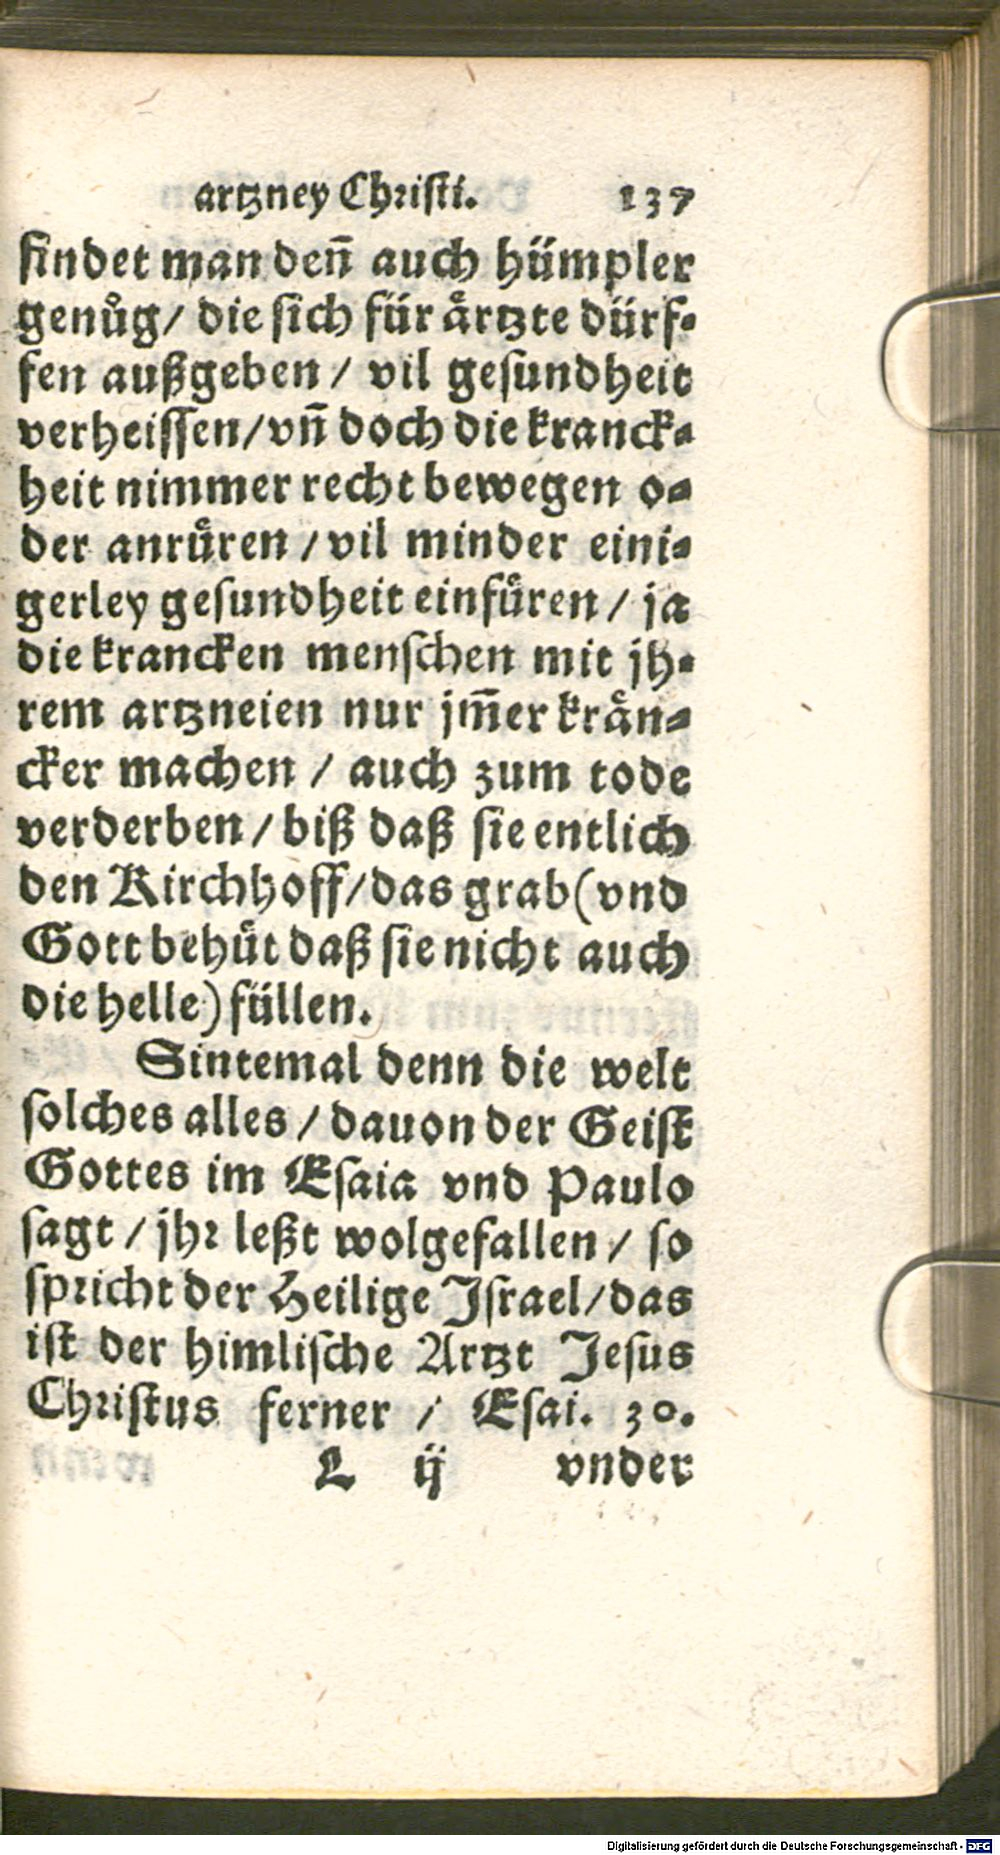 artzney Christi. 137
findet man deñ auch hümpler
genůg/ die sich für aͤrtzte dürf-
fen außgeben / vil gesundheit
verheissen/vñ doch die kranck-
heit nimmer recht bewegen o-
der anruͤren / vil minder eini-
gerley gesundheit einfuͤren / ja
die krancken menschen mit jh-
rem artzneien nur jm̃er kraͤn-
cker machen / auch zum tode
verderben / biß daß sie entlich
den Kirchhoff/das grab(vnd
Gott behuͤt daß sie nicht auch
die helle) füllen.
Sintemal denn die welt
solches alles / dauon der Geist
Gottes im Esaia vnd Paulo
sagt / jhr leßt wolgefallen / so
spricht der Heilige Israel/das
ist der himlische Artzt Jesus
Christus ferner / Esai. 30.
L ij vnder
Digitalisierung gefördert durch die Deutsche Forschungsgemeinschaft - DFG